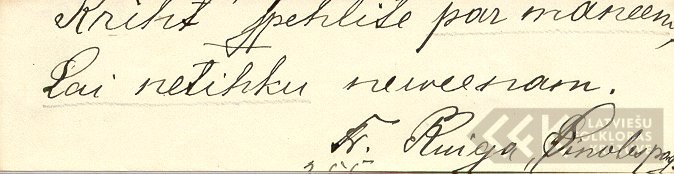 Kriht spehlite par maneem,
Lai netihku neweenam.
Fr. Ruiga, Sinoles pag.
LATVIEŠU
FOLKLORAS